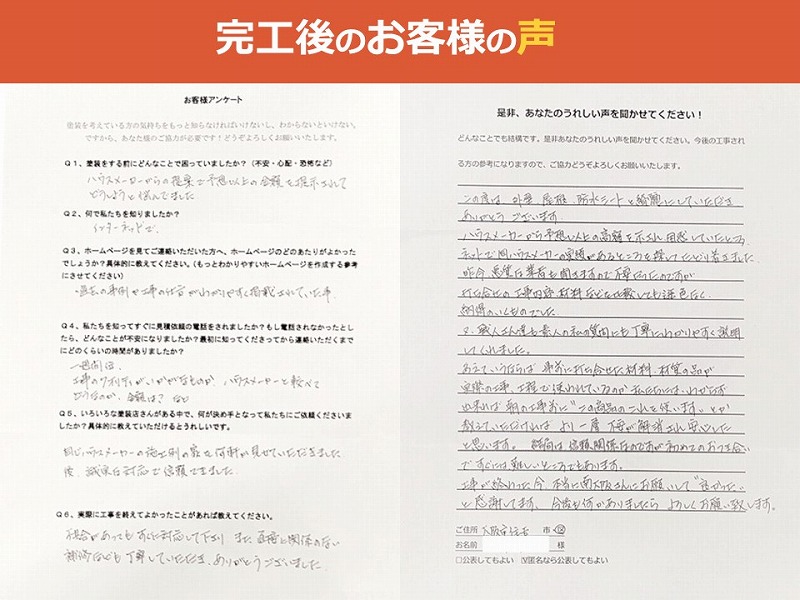 完工後のお客様の声
お客様アンケート
塗装を考えている方の気持ちをもっと知らなければいけないし、わからないといけない。
ですから、あなた様のご協力が必要です！どうぞよろしくお願いいたします。
Q1、塗装をする前にどんなことで困っていましたか？（不安・心配・恐怖など）
ハウスメーカーからの提案で予想以上の金額を提示されて
どうしようと悩んでました
Q2、何で私たちを知りましたか？
インターネットで
Q3、ホームページを見てご連絡いただいた方へ、ホームページのどのあたりがよかった
でしょうか？具体的に教えてください。（もっとわかりやすいホームページを作成する参考
にさせてください）
・過去の事例や工事の仕方がわかりやすく掲載されていた事
Q4、私たちを知ってすぐに見積依頼の電話をされましたか？もし電話されなかったとし
たら、どんなことが不安になりましたか？最初に知ってくださってから連絡いただくまで
にどのくらいの時間がありましたか？
一週間位
工事のクオリティがいかがなものか、ハウスメーカーと較べて
どうなのか、金額は？など
Q5、いろいろな塗装店さんがある中で、何が決め手となって私たちにご依頼くださいま
したか？具体的に教えていただけるとうれしいです。
同じハウスメーカーの施工例の家を何軒か見せていただきました
後、誠実な対応で信頼できました
Q6、実際に工事を終えてよかったことがあれば教えてください。
不具合があってもすぐに対応して下さり また 直接に関係のない
補修なども丁寧していただき、ありがとうございました
是非、あなたのうれしい声を聞かせてください！
どんなことでも結構です。是非あなたのうれしい声を聞かせてください。今後の工事され
る方の参考になりますので、ご協力どうぞよろしくお願いいたします。
この度は、外壁、屋根、防水シートと綺麗にしていただき
ありがとうございます。
ハウスメーカーから予想以上の高額を示され困惑していたところ
ネットで同ハウスメーカーの実績があるところを探してたどり着きました
昨今 悪質な業者も聞きますので不安だったのですが
打ち合せの工事内容、材料などを比較しても遜色なく
納得のいくものでした
又、職人さん達も素人の私の質問にも丁寧にわかりやすく説明
してくれました。
あえていうならば 事前に打ち合せた材料、材質の品が
実際の工事、工程で使われているのか 私たちにはわからず
出来れば 朝の工事前に"この商品のこれを使います、とか
教えていただければ より一層 不安が解消され安心した
と思います。 結局は信頼関係なのですが初めてのお付き合い
ですぐには難しいところでもあります。
工事が終わった今、本当に南大阪さんにお願いして"良かった"
と感謝してます。今後も何かありましたら よろしくお願い致します。
ご住所 大阪府 市・
お名前 様
□公表してもよい ☑匿名なら公表してもよい